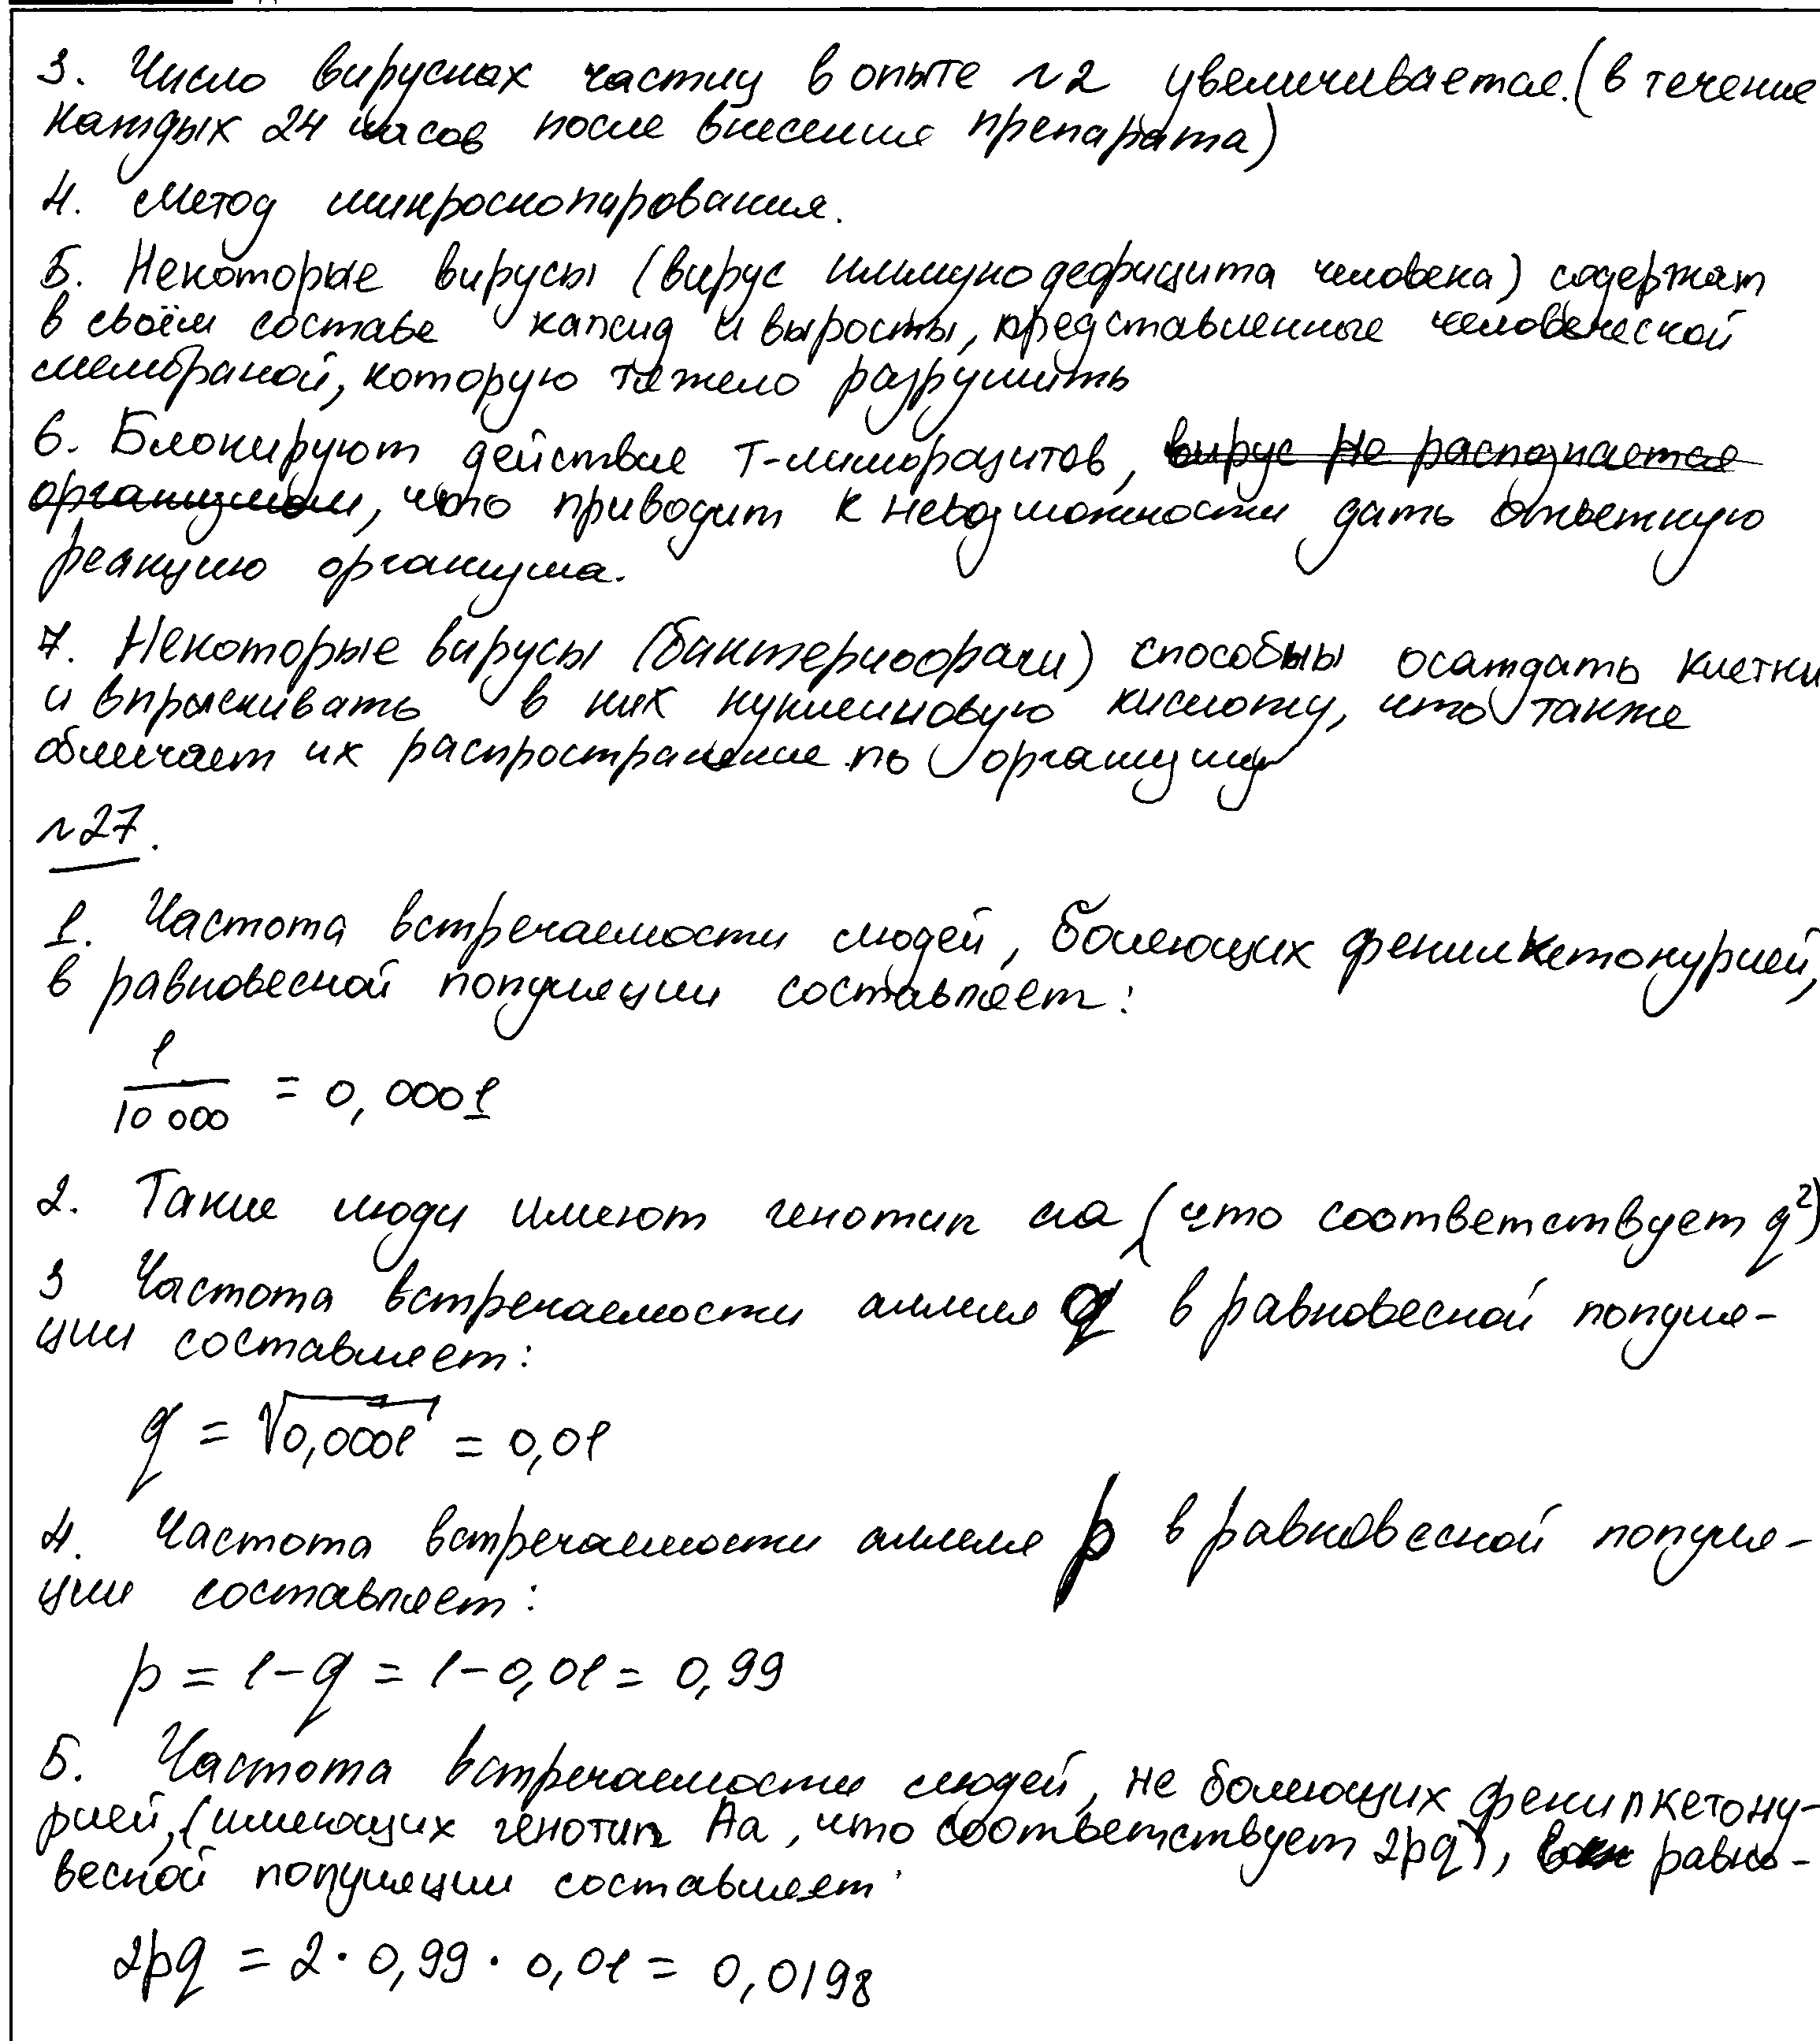 3. Число вирусных частиц в опыте №2 увеличивается. (в течение
каждых 24 часов после внесения препарата)
4. Метод микроскопирования.
5. Некоторые вирусы (вирус иммунодефицита человека) содержат
в своём составе капсид и выросты, представленные человеческой
мембраной, которую тяжело разрушить
6. Блокируют действие Т-лимфоцитов, вирус не распознается
организмом, что приводит к невозможности дать ответную
реакцию организма.
7. Некоторые вирусы (бактериофаги) способны осаждать клетки
и впрыскивать в них нуклеиновую кислоту, что также
облегчает их распространение по организму
№27.
1. Частота встречаемости людей, болеющих фенилкетонурией,
в равновесной популяции составляет:
1/10 000 = 0,0001
2. Такие люди имеют генотип аа (что соответствует q²)
3 Частота встречаемости аллеля q в равновесной популя-
ции составляет:
q = √0,0001 = 0,01
4. Частота встречаемости аллеля p в равновесной популя-
ции составляет:
p = 1-q = 1-0,01 = 0,99
5. Частота встречаемости людей, не болеющих фенилкетону-
рией, (имеющих генотип Аа, что соответствует 2pq), в равно-
весной популяции составляет:
2pq = 2·0,99·0,01 = 0,0198